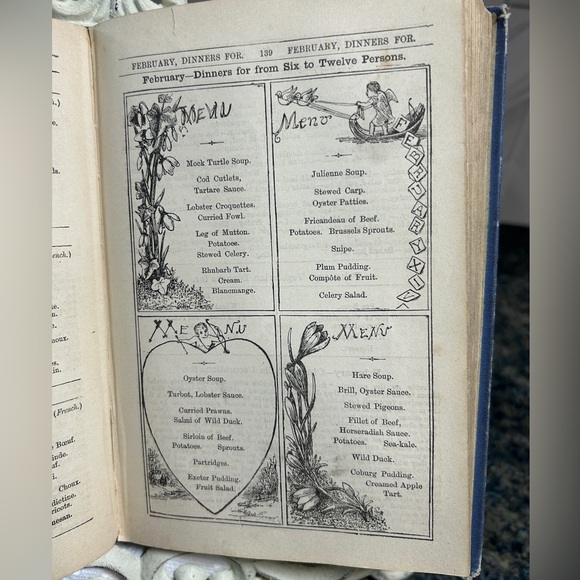 FEBRUARY, DINNERS FOR. 139 FEBRUARY, DINNERS FOR.
February—Dinners for from Six to Twelve Persons.
MENU
Mock Turtle Soup.
Cod Cutlets,
Tartare Sauce.
Lobster Croquettes.
Curried Fowl.
Leg of Mutton.
Potatoes.
Stewed Celery.
Rhubarb Tart.
Cream.
Blancmange.
Menu
FEBRUARY XIV
Julienne Soup.
Stewed Carp.
Oyster Patties.
Fricandeau of Beef.
Potatoes. Brussels Sprouts.
Snipe.
Plum Pudding.
Compôte of Fruit.
Celery Salad.
MENU
Oyster Soup.
Turbot, Lobster Sauce.
Curried Prawns.
Salmi of Wild Duck.
Sirloin of Beef.
Potatoes. Sprouts.
Partridges.
Exeter Pudding.
Fruit Salad.
MENU
Hare Soup.
Brill, Oyster Sauce.
Stewed Pigeons.
Fillet of Beef,
Horseradish Sauce.
Potatoes. Sea-kale.
Wild Duck.
Coburg Pudding.
Creamed Apple
Tart.
(French.)
Bœuf.
Choux.